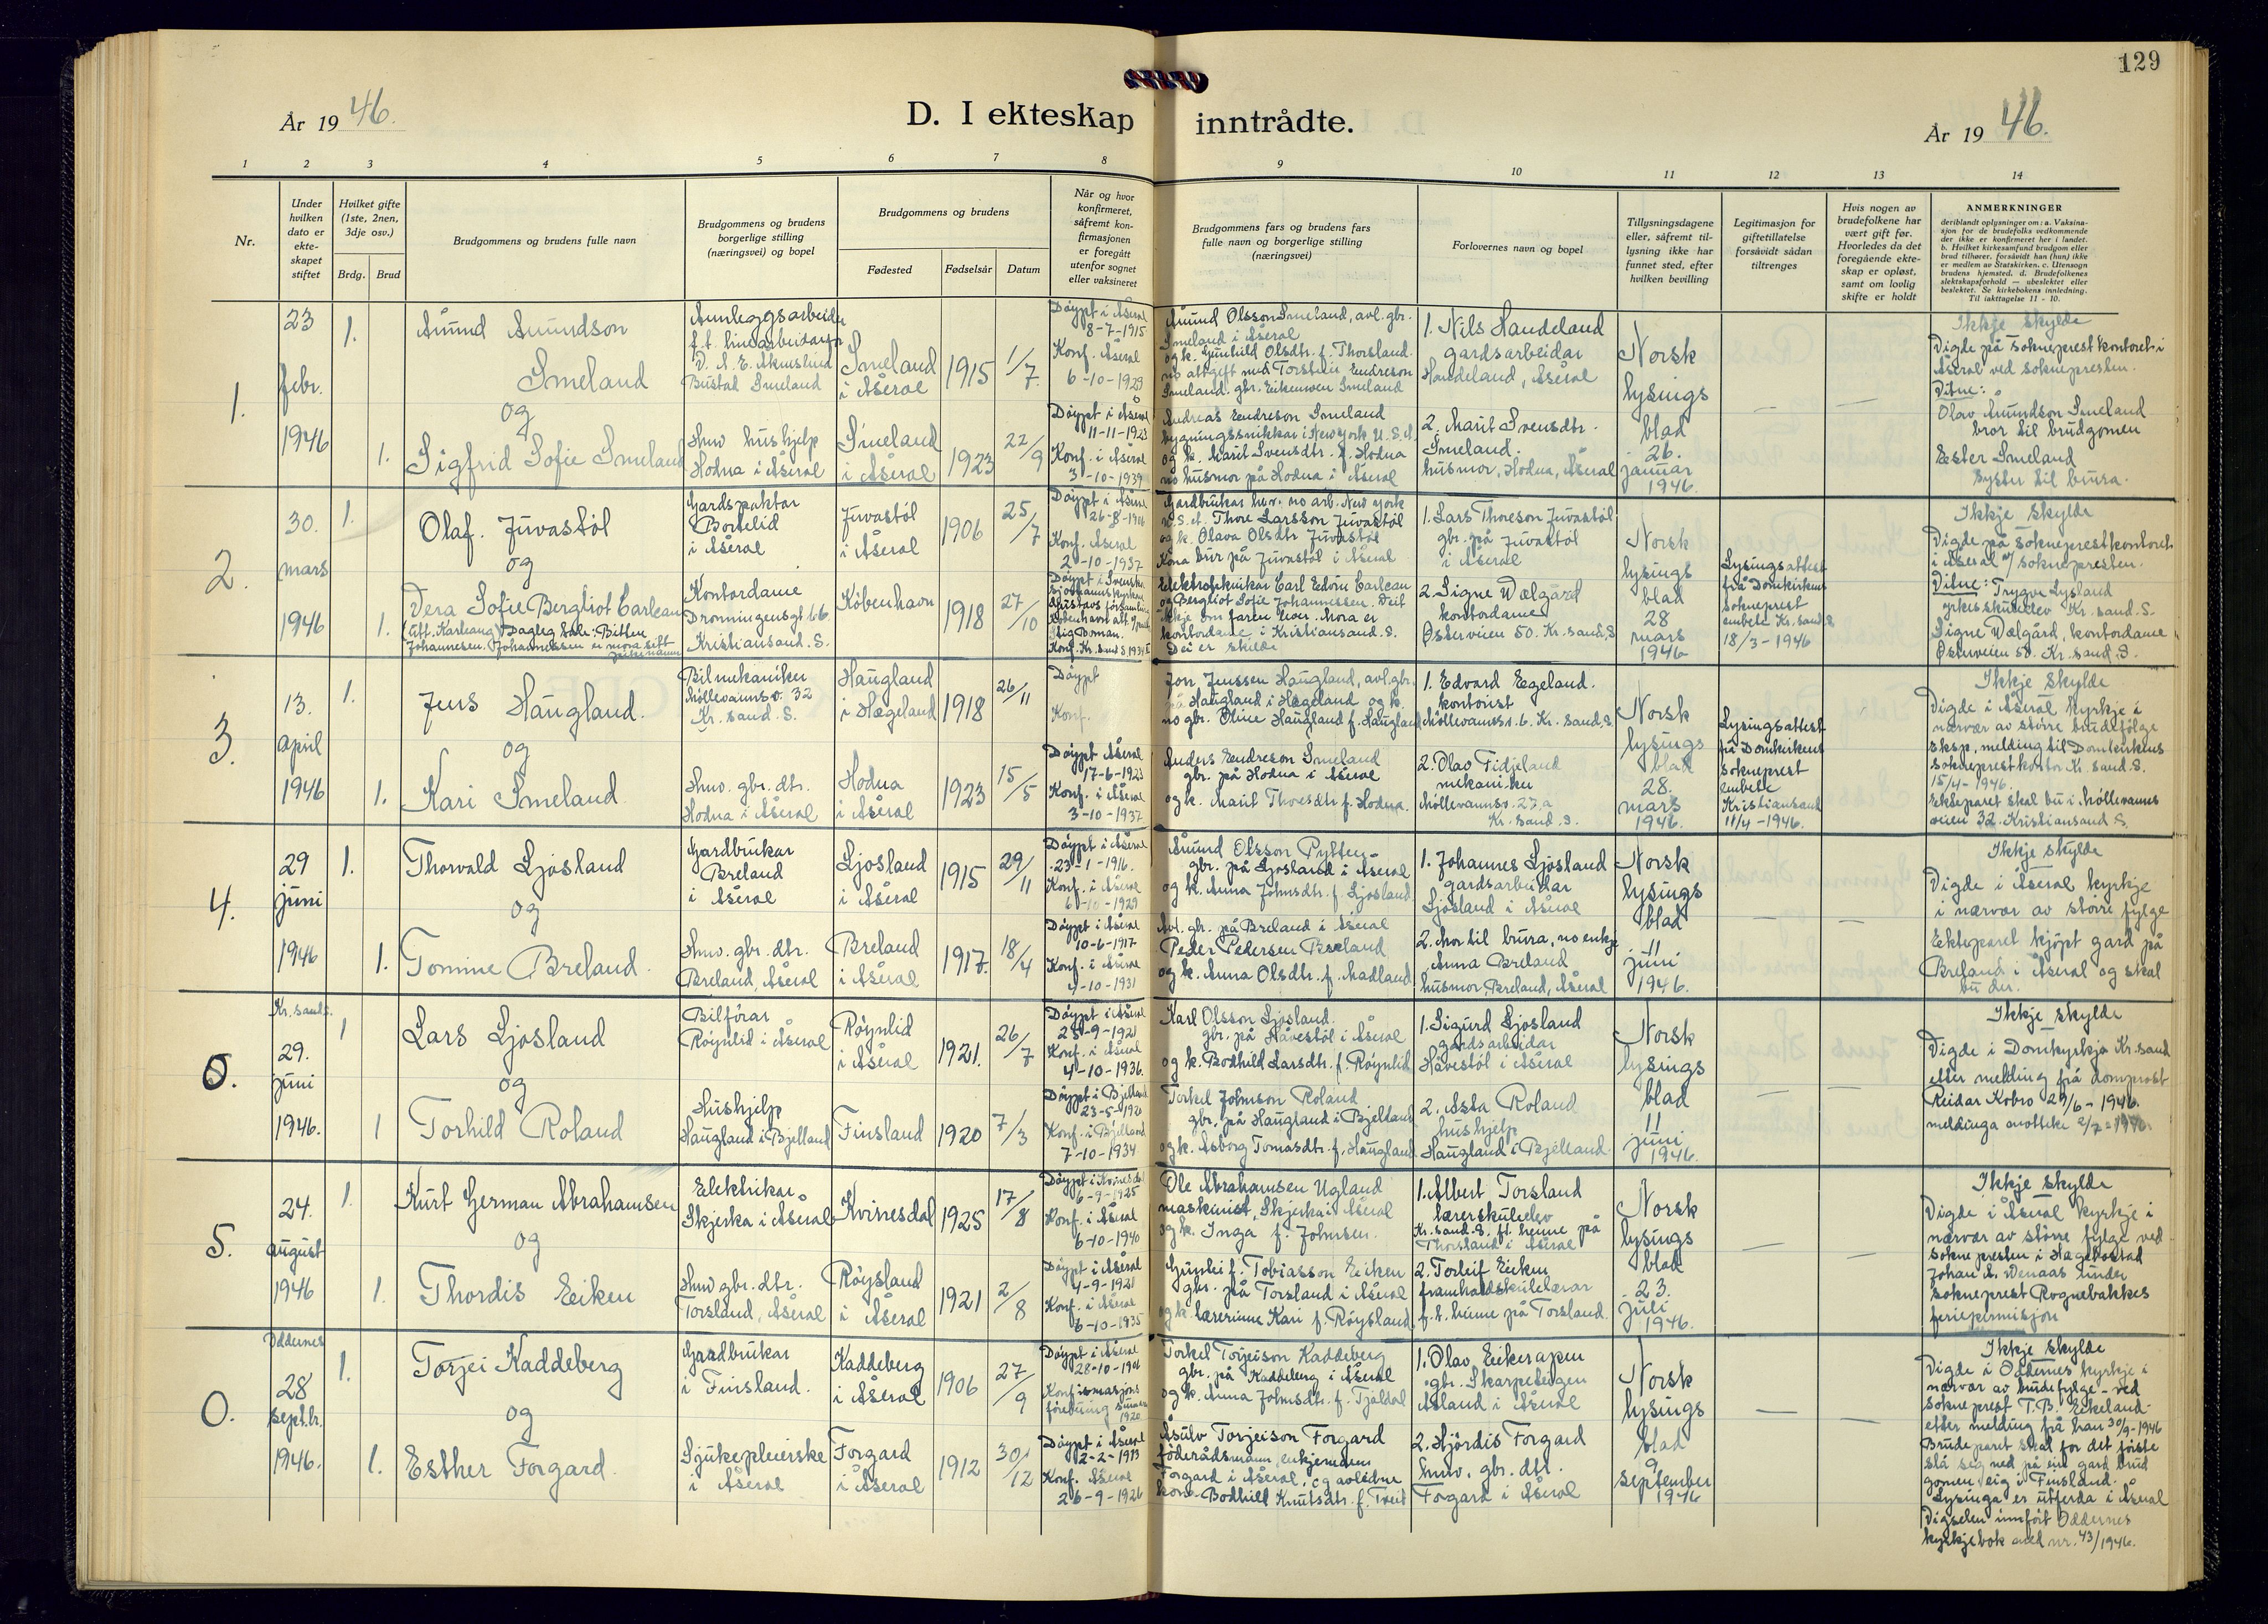 129
År 1946.
D. I ekteskap inntrådte.
År 1946.
1 2 3 4 5 6 7 8 9 10 11 12 13 14
Nr.
Under hvilken dato er ekteskapet stiftet
Hvilket gifte (1ste, 2nen, 3dje osv.)
Brdg.
Brud
Brudgommens og brudens fulle navn
Brudgommens og brudens borgerlige stilling (næringsvei) og bopel
Brudgommens og brudens
Fødested
Fødselsår
Datum
Når og hvor konfirmeret, såfremt konfirmasjonen er foregått utenfor sognet eller vaksineret
Brudgommens fars og brudens fars fulle navn og borgerlige stilling (næringsvei)
Forlovernes navn og bopel
Tillysningsdagene eller, såfremt tillysning ikke har funnet sted, efter hvilken bevilling
Legitimasjon for giftetillatelse forsåvidt sådan tiltrenges
Hvis nogen av brudefolkene har vært gift før. Hvorledes da det foregående ekteskap er opløst, samt om lovlig skifte er holdt
ANMERKNINGER
deriblandt oplysninger om: a. Vaksinasjon for de brudefolks vedkommende der ikke er konfirmeret her i landet. b. Hvilket kirkesamfund brudgom eller brud tilhører, forsåvidt han (hun) ikke er medlem av Statskirken. c. Utensogn brudens hjemsted. d. Brudefolkenes slektskapsforhold — ubeslektet eller beslektet. Se kirkebokens innledning. Til iakttagelse 11 - 10.
1.
23 febr. 1946
1.
Åmund Åmundson Smeland
og
1.
Sigfrid Sofie Smeland
Anleggsarbeidar
Bustad Smeland
Smeland i Åseral
1915
1/7
Døypt i Åseral 8-7-1915
Konf. Åseral 6-10-1929
Hmv hushjelp
Hodna i Åseral
Smeland i Åseral
1923
22/9
Døypt i Åseral 11-11-1923
Konf. i Åseral 3-10-1937
Åmund Olsson Smeland, avl. gbr.
Smeland i Åseral
og k. Gunhild Olsdtr. f. Thorsland.
no attgift med Torstein Endreson
Smeland. gbr. Eikenwen Smeland
Andreas Endreson Smeland
bygningssnikkar i New York U.S.A.
og k. Marit Svensdtr. f. Hodna
no husmor på Hodna i Åseral
1. Nils Handeland
gardsarbeidar
Handeland, Åseral
2. Marit Svensdtr.
Smeland.
husmor, Hodna, Åseral
Norsk
lysings
blad
26.
januar
1946.
Ikkje skylde
Vigde på sokneprestkontoret i
Åseral ved soknepresten.
Vitne:
Olav Åmundson Smeland
bror til brudgomen
Ester Smeland
syster til brura.
2.
30. mars 1946
1.
Olaf. Juvastøl
og
1.
Vera Sofie Bergliot Carlean
(utt. Karleang) Dagleg tale: Bitten
Johannesen. Johannessen er mora sitt
pikenamn
Gardspaktar
Bortelid
i Åseral
Juvastøl
i Åseral
1906
25/7
Døypt i Åseral
26-8-1906
Konf. Åseral
Kontordame
Dronningensgt 66
Kristiansand. S.
København
1918
27/10
Gardbrukar hev. no arb. New York
U.S.A. Thore Larsson Juvastøl
og k. Olava Olsdtr Juvastøl
Kona bur på Juvastøl i Åseral
Elektroteknikar Carl Edvin Carlean
og Bergliot Sofie Johannessen. Veit
ikkje om faren lever. Mora er
kontordame i Kristiansand. S.
Dei er skilde
1. Lars Thoreson Juvastøl
gbr. på Juvastøl
i Åseral
2. Signe Vælgård
kontordame
Østerveien 50. Kr. sand. S
Norsk
lysings
blad
28
mars
1946
Lysingsattest
frå Domkirkens
sokneprest
embete Kr. sand. S
18/3-1946
Ikkje skylde
Vigde på sokneprestkontoret
i Åseral v/ soknepresten.
Vitne: Trygve Lysland
yrkesskuleelev Kr. sand. S.
Signe Vælgård, kontordame
Østerveien 50. Kr. sand. S.
3.
13. april 1946
1.
Jens Haugland.
og
1.
Kari Smeland.
Bilmekaniker
Møllevannsv. 32
Kr. sand. S.
Haugland
i Hægeland
1918
26/11
Døypt
Konf.
Hmv. gbr. dtr.
Hodna i Åseral
Hodna
i Åseral
1923
15/5
Døypt Åseral
17-6-1923
Konf. i Åseral
3-10-1937
Jon Jenssen Haugland, avl. gbr.
på Haugland i Hægeland og k.
no gbr. Oline Haugland f. Haugland
Anders Endreson Smeland
gbr. på Hodna i Åseral
og k. Marit Thoresdtr. f. Hodna.
1. Edvard Egeland.
kontorist
Møllevannsv. 6. Kr. sand. S.
2. Olav Fidjeland
mekaniker
Møllevannsv. 27a
Kr. sand. S.
Norsk
lysings
blad
28.
mars
1946.
Lysingsattest
frå Domkirkens
sokneprest
embete
Kristiansand
11/4-1946.
Ikkje skylde
Vigde i Åseral kyrkje i
nærvær av større brudefølge
Eksp. melding til Domkirkens
sokneprestkontor Kr. sand. S.
15/4-1946.
Ekteparet skal bu i Møllevanns
veien 32. Kristiansand S.
4.
29 juni 1946
1.
Thorvald Ljosland
og
1.
Tomine Breland.
Gardbrukar
Breland
i Åseral
Ljosland
i Åseral
1915
29/11
Døypt i Åseral
23-1-1916.
Konf. i Åseral
6-10-1929
Hmv. gbr. dtr.
Breland, Åseral
Breland
i Åseral
1917.
18/4
Døypt i Åseral
10-6-1917
Konf. i Åseral
4-10-1931
Åmund Olsson Pytten
gbr. på Ljosland i Åseral
og k. Anna Johnsdtr. f. Ljosland
Avl. gbr. på Breland i Åseral
Peder Pedersen Breland
og k. Anna Olsdtr. f. Madland
1. Johannes Ljosland
gardsarbeidar
Ljosland i Åseral
2. Mor til brura, no enkje
Anna Breland
husmor, Breland, Åseral
Norsk
lysings
blad
11
juni
1946.
Ikkje skylde
Vigde i Åseral kyrkje
i nærvær av større fylge
Ekteparet kjøpt gard på
Breland i Åseral og skal
bu der.
0.
Kr. sand S.
29. juni 1946.
1
Lars Ljosland
og
1
Torhild Roland
Bilførar
Røynlid i Åseral
Røynlid
i Åseral
1921.
26/7
Døypt i Åseral
25-9-1921
Konf. i Åseral
4-10-1936.
Hushjelp
Haugland i Bjelland
Finsland
1920
7/3
Døypt i Bjelland
23-5-1920
Konf. i Bjelland
7-10-1934
Karl Olsson Ljosland.
gbr. på Håvestøl i Åseral
og k. Bodhild Larsdtr. f. Røynlid
Torkel Johnson Roland
gbr. på Haugland i Bjelland
og k. Asborg Tomasdtr. f. Haugland
1. Sigurd Ljosland
gardsarbeidar
Håvestøl i Åseral
2. Asta Roland
hushjelp
Haugland i Bjelland.
Norsk
lysings
blad
11
juni
1946.
Ikkje skylde
Vigde i Domkyrkja Kr. sand
etter melding frå domprost
Reidar Kobro 29/6-1946.
meldinga motteke 2/7-1946.
5.
24. august 1946
1.
Kurt Herman Abrahamsen
og
1.
Thordis Eiken
Elektrikar
Skjerka i Åseral
Kvinesdal
1925
17/8
Døypt i Kvinesdal
6-9-1925
Konf. i Åseral
6-10-1940
Hmv gbr. dtr.
Torsland, Åseral
Røysland
i Åseral
1921
2/8
Døypt i Åseral
4-9-1921
Konf. i Åseral
6-10-1935
Ole Abrahamsen Ugland
maskinist, Skjerka i Åseral
og k. Inga f. Johnsen.
Gunleif. Tobiasson Eiken
gbr. på Torsland i Åseral
og k. lærerinne Kari f. Røysland
1. Albert Torsland
lærerskuleelev
Kr. sand. S. ft. heime på
Thorsland i Åseral
2. Torleif Eiken
framhaldsskulelærar
f. t. heime på Torsland.
Norsk
lysings
blad
23.
juli
1946.
Ikkje skylde
Vigde i Åseral kyrkje i
nærvær av større fylge ved
soknepresten i Hægebostad
Johan A. Wenaas under
sokneprest Rognebakkes
feriepermisjon
0.
Oddernes
28 sept.br. 1946.
1.
Torjei Kaddeberg
og
1.
Esther Forgard.
Gardbrukar
i Finsland.
Kaddeberg
i Åseral
1906
27/9
Døypt i Åseral
28-10-1906
Konfirmasjons
førebuing
1920
Sjukepleierske
i Åseral
Forgard
i Åseral
1912
30/12
Døypt i Åseral
2-2-1913
Konf. Åseral
26-9-1926
Torkel Torjeison Kaddeberg
gbr. på Kaddeberg i Åseral
og k. Anna Johnsdtr. f. Tjaldal
Åsulv Torjeison Forgard
føderådsmann, enkjemann
Forgard i Åseral, og avlidne
kone Bodhild Knutsdtr. f. Tveit
1. Olav Eikerapen
gbr. Skarpeteigen
Åsland i Åseral
2. Hjørdis Forgard
hmv. gbr. dtr.
Forgard i Åseral
Norsk
lysings
blad
9
september
1946
Ikkje skylde
Vigde i Oddernes kyrkje i
nærvær av brudefylge - ved
sokneprest T.B. Eikeland
etter melding frå han 30/9-1946
Brudeparet skal for det første
slå seg ned på ein gard brud
gomen eig i Finsland.
Lysinga er utferda i Åseral
Vigselen innført Oddernes
kyrkjebok med nr. 43/1946.